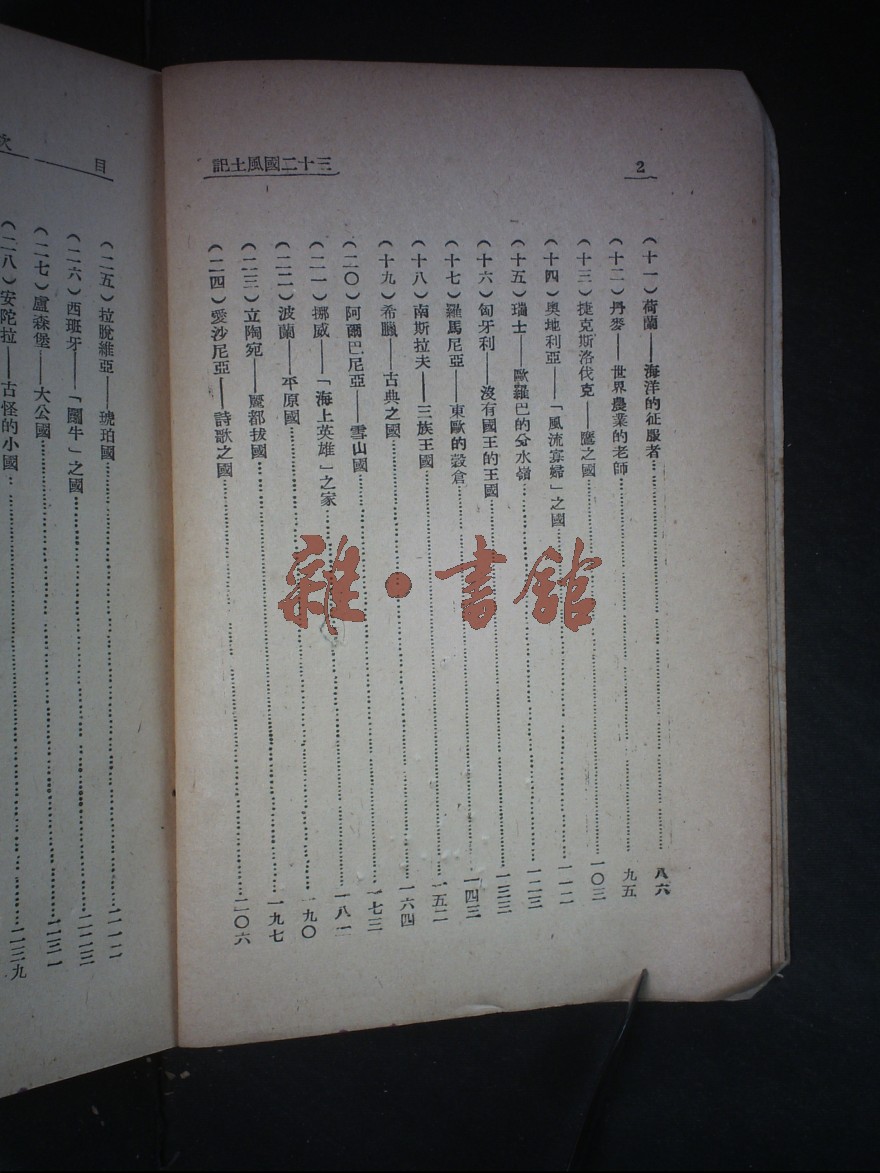 三十二國風土記
2
(十一)荷蘭——海洋的征服者……八六
(十二)丹麥——世界農業的老師……九五
(十三)捷克斯洛伐克——鷹之國……一〇三
(十四)奧地利亞——「風流寡婦」之國……一一二
(十五)瑞士——歐羅巴的分水嶺……一二三
(十六)匈牙利——沒有國王的王國……一三三
(十七)羅馬尼亞——東歐的穀倉……一四三
(十八)南斯拉夫——三族王國……一五二
(十九)希臘——古典之國……一六四
(二〇)阿爾巴尼亞——雪山國……一七三
(二一)挪威——「海上英雄」之家……一八二
(二二)波蘭——平原國……一九〇
(二三)立陶宛——屢都拔國……一九七
(二四)愛沙尼亞——詩歌之國……二〇六
目 次
(二五)拉脫維亞——琥珀國……二一二
(二六)西班牙——「鬬牛」之國……二二三
(二七)盧森堡——大公國……二三一
(二八)安陀拉——古怪的小國……二三九
雜·書館